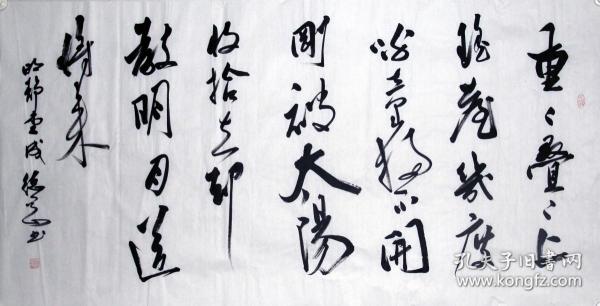 重々叠々上
瑶台几度
呼童扫不开
刚被太阳
收拾去却
教明月送
将来
孔夫子旧书网
www.kongfz.com